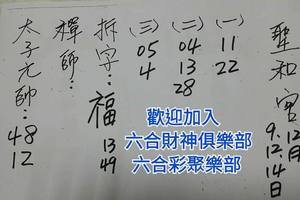 聖和宮
12月
9.12.14日
(一) 11 22
(二) 04 13 28
(三) 05 4
拆字:福 13 49
禪師:
太子元帥:48 12
歡迎加入
六合財神俱樂部
六合彩聚樂部